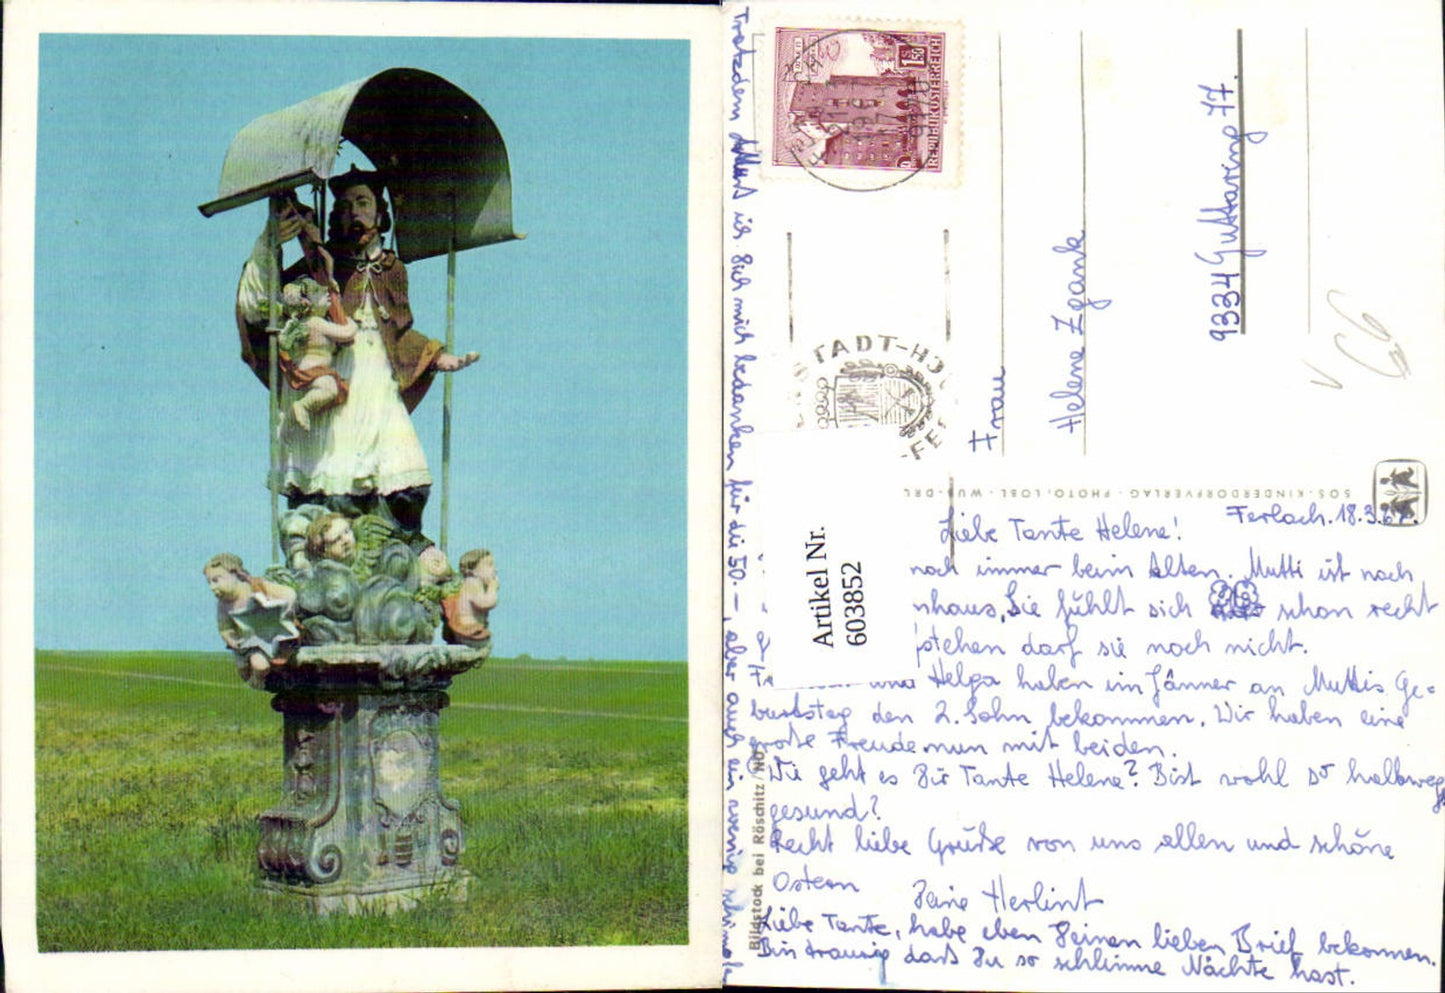 1.50
REPUBLIK ÖSTERREICH
Frau
Helene Zgank
9334 Guttaring 77.
V 66
SOS-KINDERDORFVERLAG - PHOTO, LÖBL - WUB-DRL
Artikel Nr.
603852
Bildstock bei Röschitz / NÖ
Ferlach. 18.3.67.
Liebe Tante Helene!
noch immer beim Alten. Mutti ist noch
nhaus, Sie fühlt sich schon recht
fstehen darf sie noch nicht.
und Helga haben im Jänner an Muttis Ge-
burtstag den 2. Sohn bekommen. Wir haben eine
große Freude nun mit beiden.
Wie geht es Dir Tante Helene? Bist wohl so halbwegs
gesund?
Recht liebe Grüße von uns allen und schöne
Ostern Deine Herlint
Liebe Tante, habe eben Deinen lieben Brief bekommen.
Bin traurig daß Du so schlimme Nächte hast.
Trotzdem muß ich Dich mich bedanken für die 50.-, aber auch ein wenig